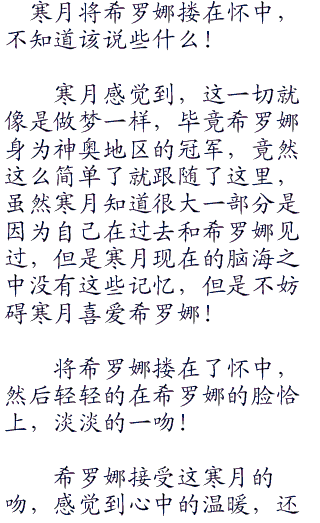 寒月将希罗娜搂在怀中，
不知道该说些什么！
寒月感觉到，这一切就
像是做梦一样，毕竟希罗娜
身为神奥地区的冠军，竟然
这么简单了就跟随了这里，
虽然寒月知道很大一部分是
因为自己在过去和希罗娜见
过，但是寒月现在的脑海之
中没有这些记忆，但是不妨
碍寒月喜爱希罗娜！
将希罗娜搂在了怀中，
然后轻轻的在希罗娜的脸恰
上，淡淡的一吻！
希罗娜接受这寒月的
吻，感觉到心中的温暖，还